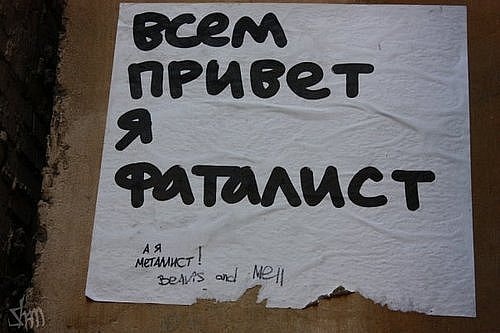 Всем
привет
я
фаталист
А Я
металист!
Beavis and Mell